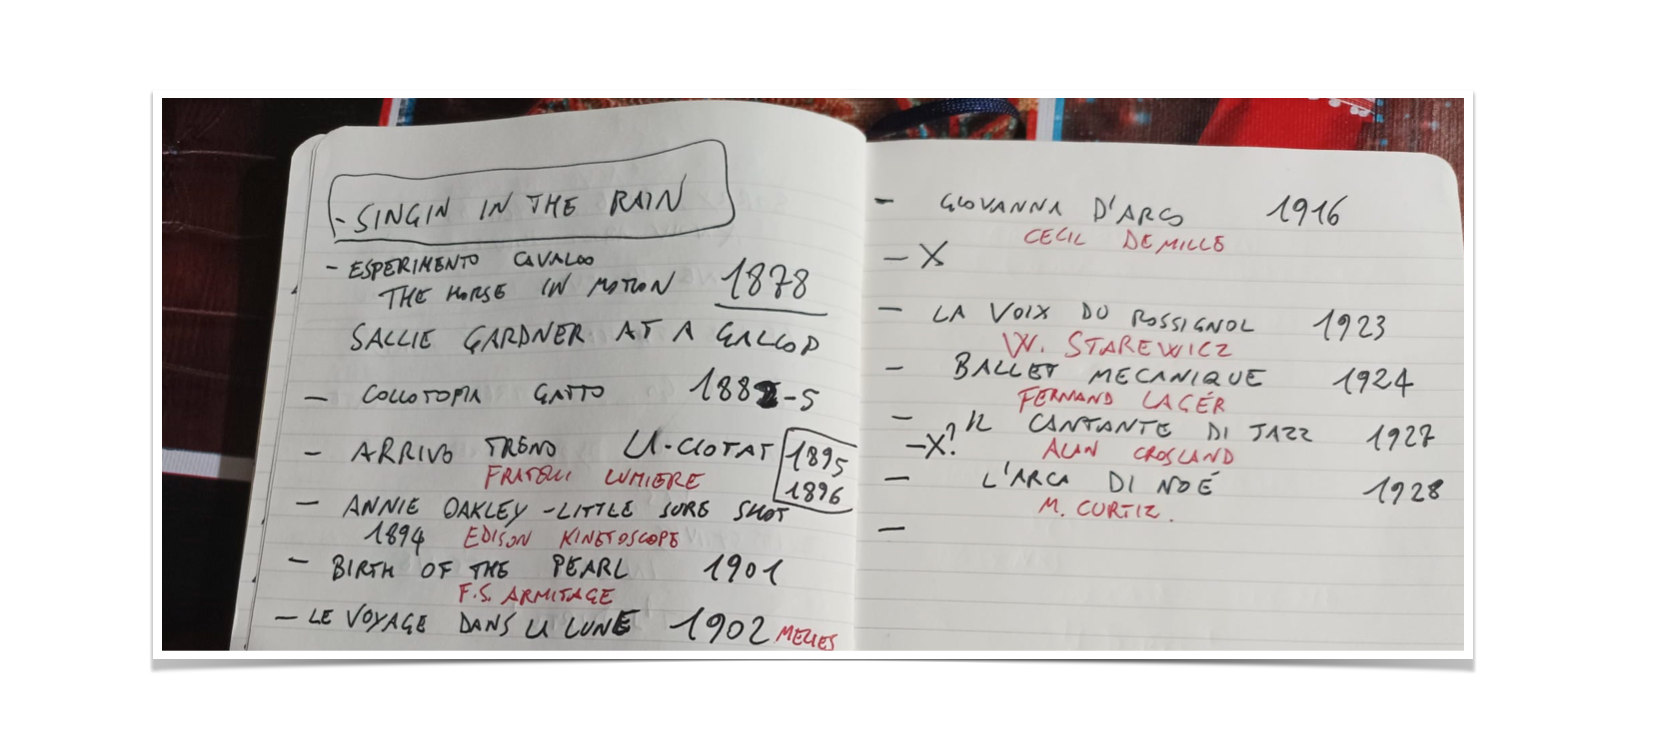 - SINGIN IN THE RAIN
- ESPERIMENTO CAVALLO
THE HORSE IN MOTION 1878
SALLIE GARDNER AT A GALLOP
- COLLOTOPIA GATTO 1882-5
- ARRIVO TRENO LA CIOTAT 1895
FRATELLI LUMIERE 1896
- ANNIE OAKLEY - LITTLE SURE SHOT
1894 EDISON KINETOSCOPE
- BIRTH OF THE PEARL 1901
F.S. ARMITAGE
- LE VOYAGE DANS LA LUNE 1902 MELIES
- GIOVANNA D'ARCO 1916
CECIL DEMILLE
- X
- LA VOIX DU ROSSIGNOL 1923
W. STAREWICZ
- BALLET MECANIQUE 1924
FERNAND LAGÉR
- IL CANTANTE DI JAZZ 1927
- X? ALAN CROSLAND
- L'ARCA DI NOÉ 1928
M. CURTIZ.
-